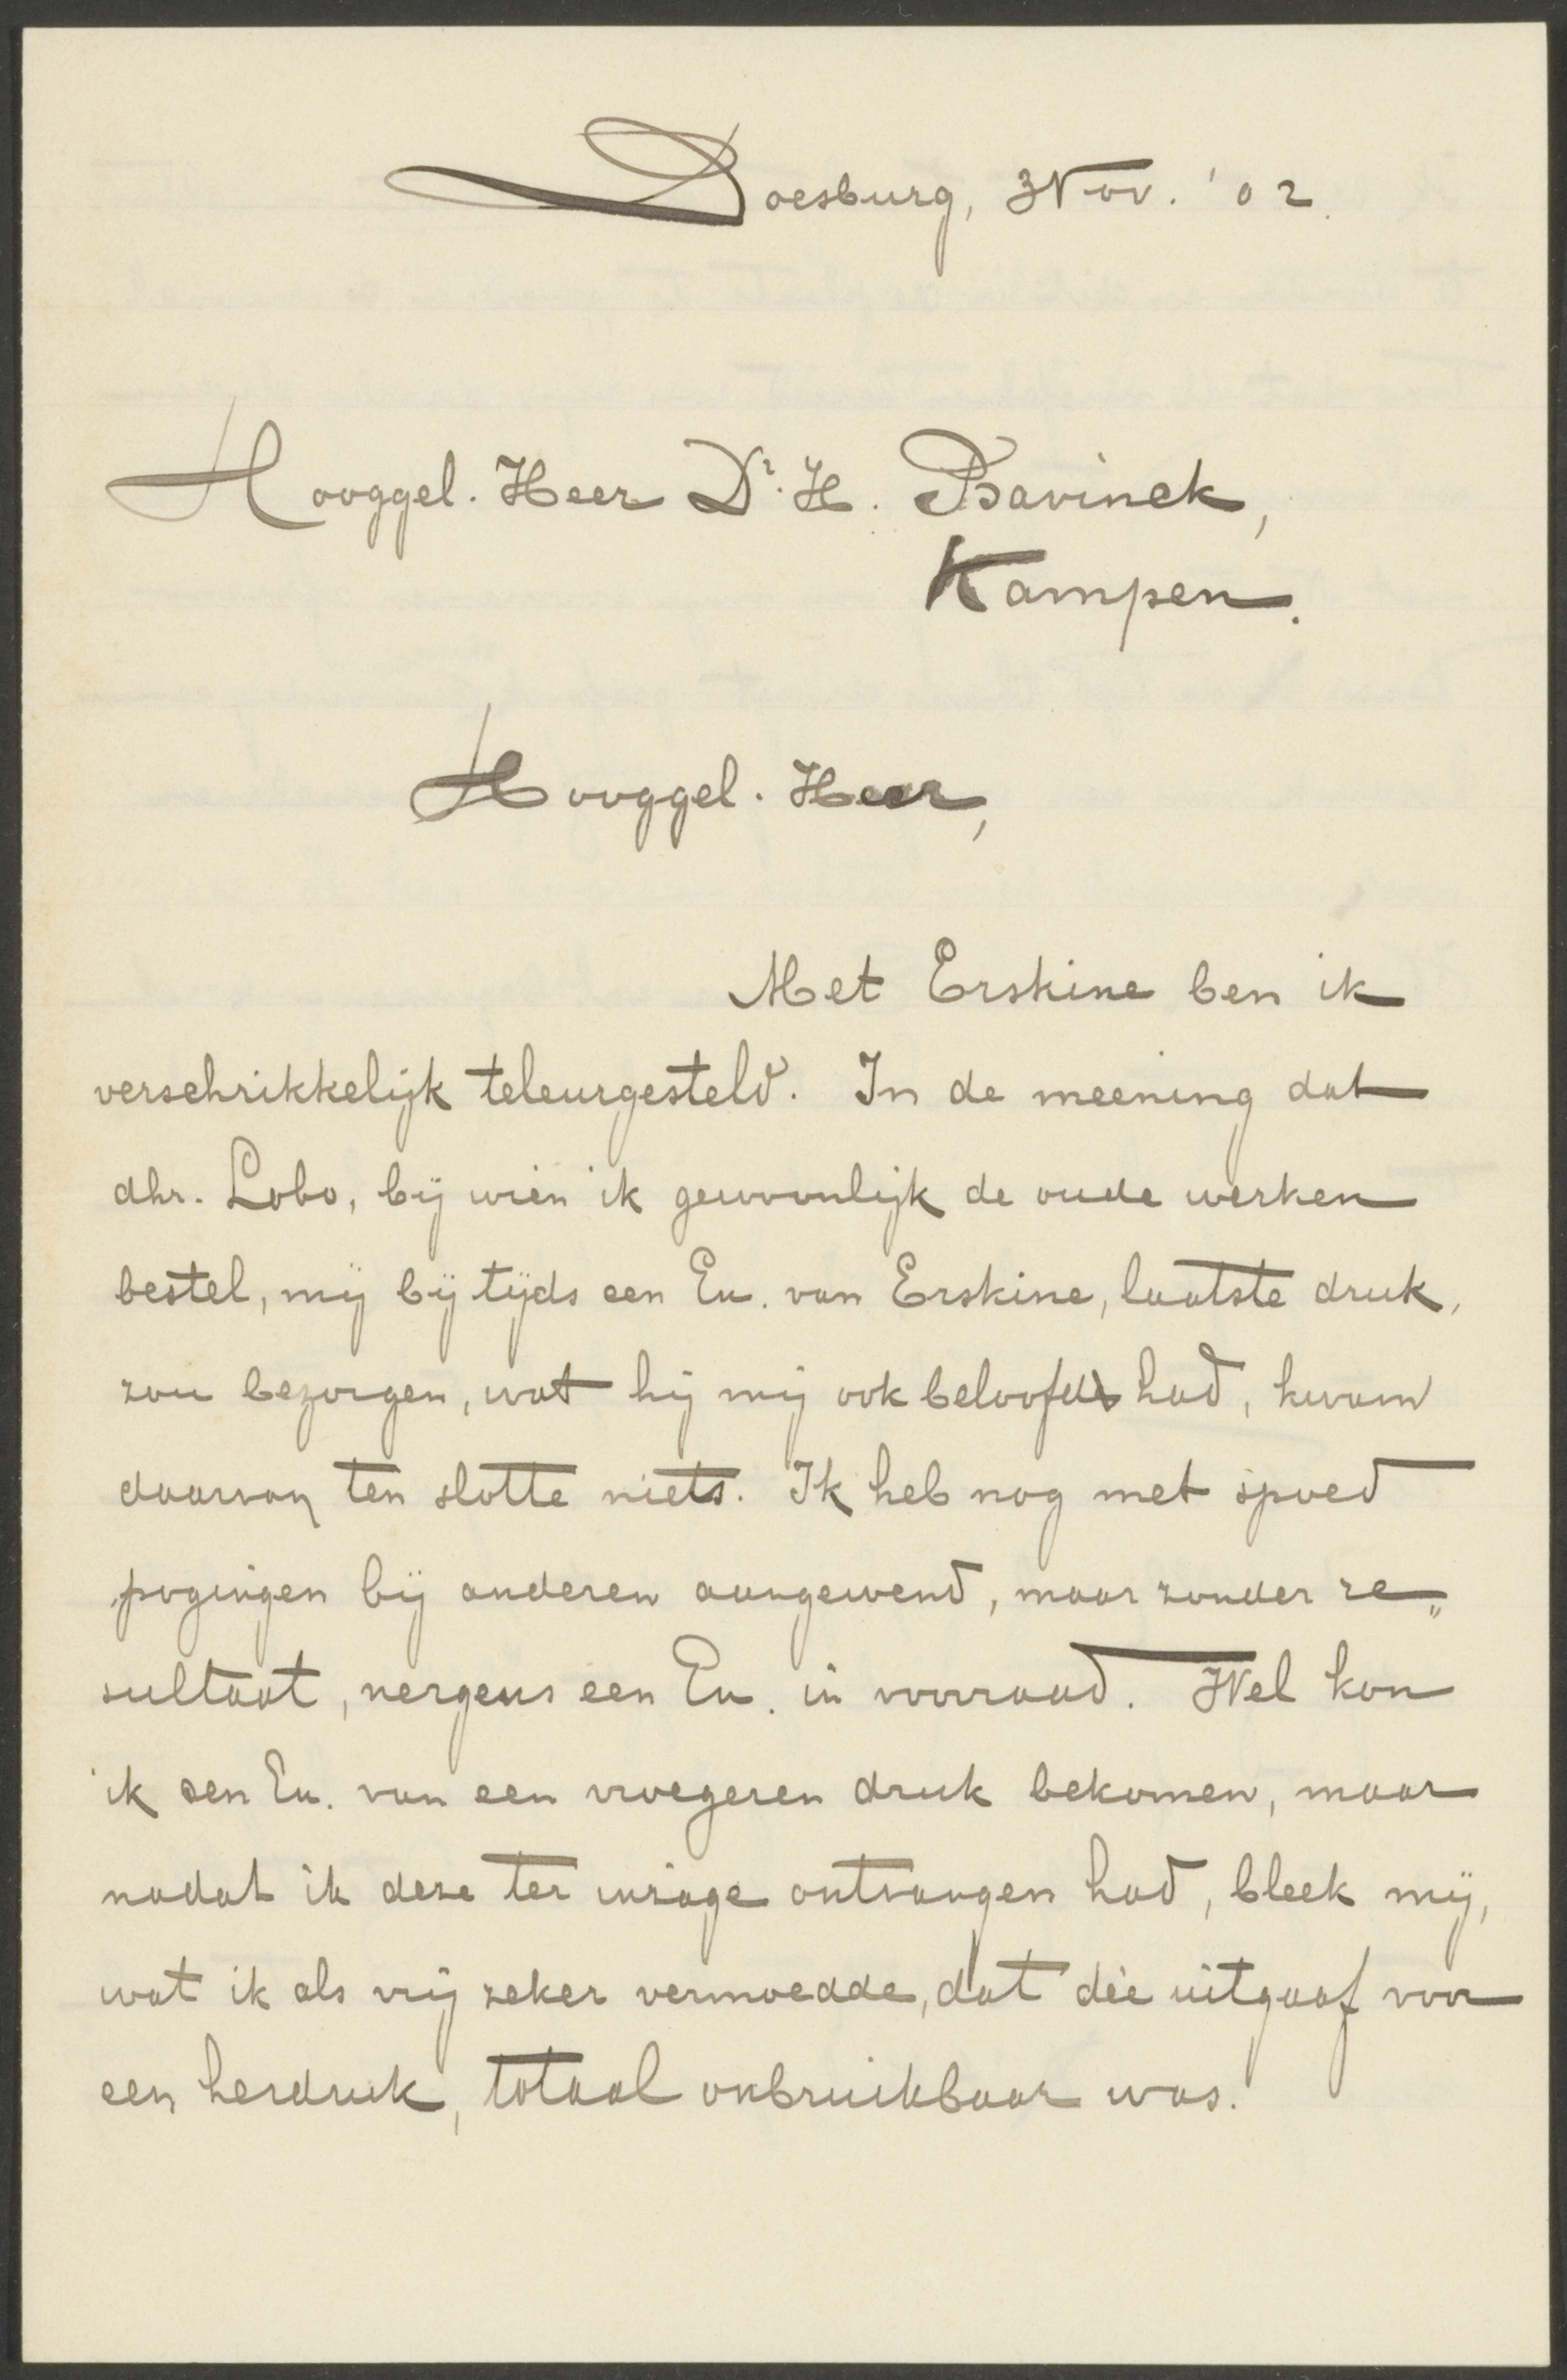 Doesburg, 3 Nov. '02.
Hooggel. Heer Dr. H. Bavinck,
Kampen.
Hooggel. Heer,
Met Erskine ben ik
verschrikkelijk teleurgesteld. In de meening dat
dhr. Lobo, bij wien ik gewoonlijk de oude werken
bestel, mij bij tijds een Ex. van Erskine, laatste druk,
zou bezorgen, wat hij mij ook beloofd had, kwam
daarvan ten slotte niets. Ik heb nog met spoed
pogingen bij anderen aangewend, maar zonder re„
sultaat, nergens een Ex. in voorraad. Wel kon
ik een Ex. van een vroegeren druk bekomen, maar
nadat ik deze ter inzage ontvangen had, bleek mij,
wat ik als vrij zeker vermoedde, dat die uitgaaf voor
een herdruk, totaal onbruikbaar was.